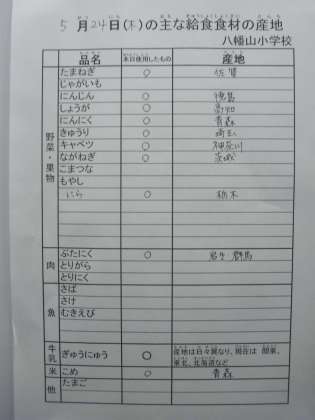 5月24日(木)の主な給食食材の産地
八幡山小学校
品名 本日使用したもの 産地
野菜・果物
たまねぎ ○ 佐賀
じゃがいも
にんじん ○ 徳島
しょうが ○ 高知
にんにく ○ 青森
きゅうり ○ 埼玉
キャベツ ○ 神奈川
ながねぎ ○ 茨城
こまつな
もやし
にら ○ 栃木
肉
ぶたにく ○ 群馬
とりがら
とりにく
魚
さば
さけ
むきえび
牛乳 ぎゅうにゅう ○ 産地は日々異なり、現在は 関東、東北、北海道など
米 こめ ○ 青森
他 たまご